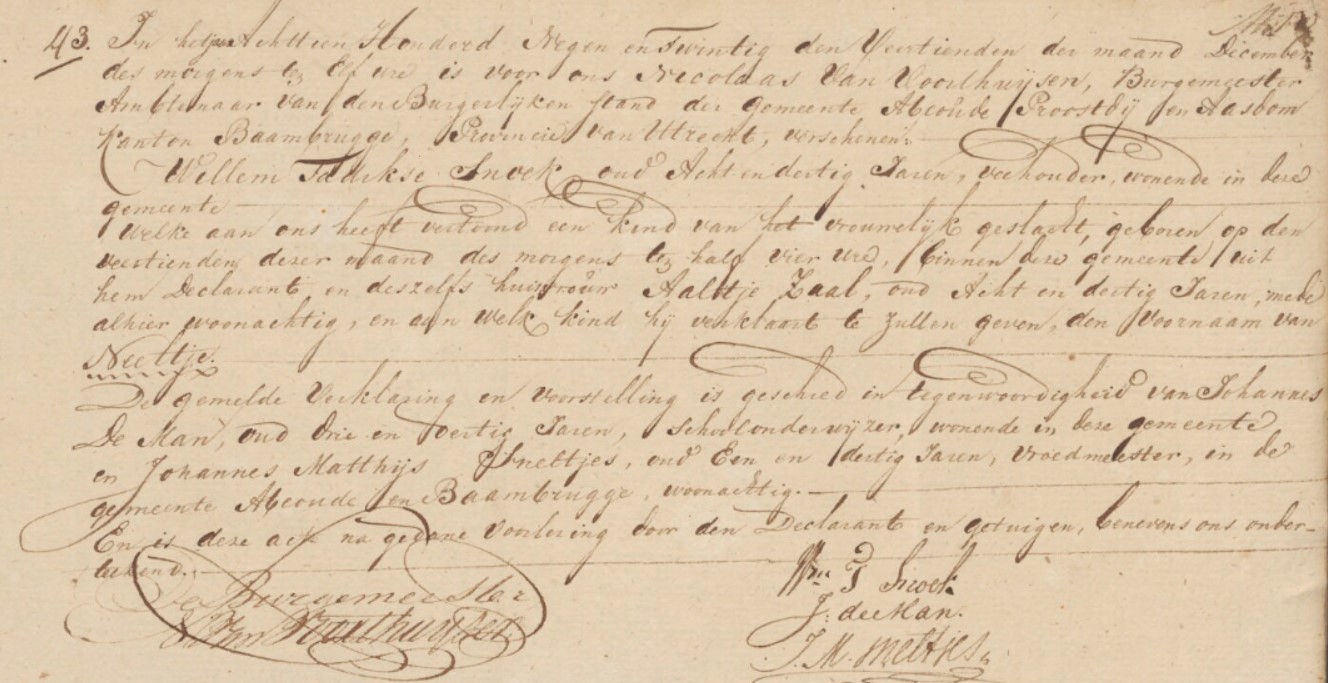 43. In het jaar Achttien Honderd Negen en Twintig den Veertienden der maand December
des morgens te Elf ure is voor ons Nicolaas Van Voorthuijsen, Burgemeester
Ambtenaar van den Burgerlijken stand der gemeente Abcoude Proostdij en Aasdom
Kanton Baambrugge, Provincie van Utrecht, verschenen:
Willem Snoek, oud Acht en dertig Jaren, veehouder, wonende in deze
gemeente
Welke aan ons heeft vertoond een kind van het vrouwelijk geslacht, geboren op den
veertienden dezer maand des morgens te half vier ure, binnen deze gemeente uit
hem Declarant en deszelfs huisvrouw Aaltje Zaal, oud Acht en dertig Jaren, mede
alhier woonachtig, en aan welk kind hij verklaart te zullen geven, den voornaam van
Neeltje.
De gemelde Verklaring en voorstelling is geschied in tegenwoordigheid van Johannes
De Man, oud drie en dertig Jaren, schoolonderwijzer, wonende in deze gemeente
en Johannes Matthijs oud Een en dertig Jaren, Vroedmeester, in de
gemeente Abcoude en Baambrugge, woonachtig.
En is deze acte na gedane voorlezing door den Declarant en getuigen, benevens ons onder-
tekend.
De Burgemeester
N Van Voorthuijsen
Wm T Snoek
J: de Man.
J. M.